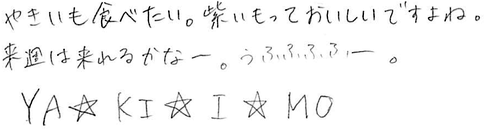 やきいも食べたい。紫いもっておいしいですよね。
来週は来れるかなー。うふふふふー。
YA☆KI☆I☆MO